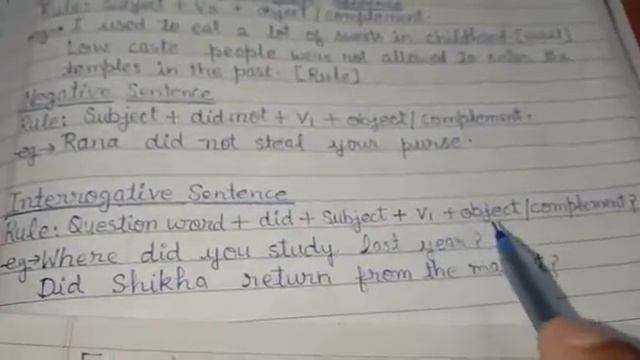 Rule: Subject + V2 + object/complement.
eg→ I used to eat a lot of in childhood
Low caste people were not allowed to enter the
temples in the past. [Rule]
Negative Sentence
Rule: Subject + did not + V1 + object/complement.
eg→ Rana did not steal your purse.
Interrogative Sentence
Rule: Question word + did + Subject + V1 + object/complement?
eg→ Where did you study last year?
Did Shikha return from the